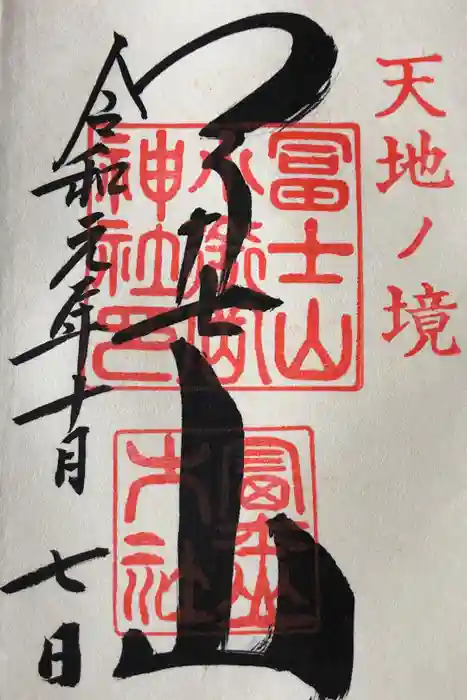 天地ノ境
冨士山
冨士山
小御嶽
神社印
令和元年十月七日